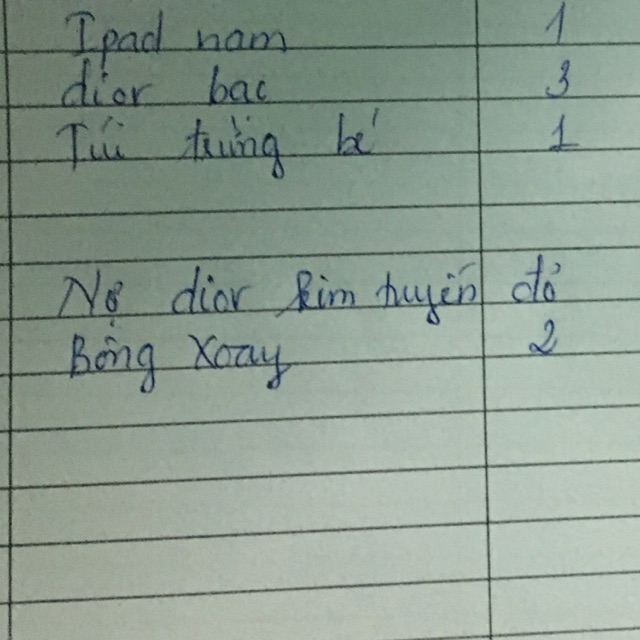 Ipad nam 1
dior bac 3
Túi trứng bé 1
Nợ dior kim tuyến đỏ
Bông xoay 2